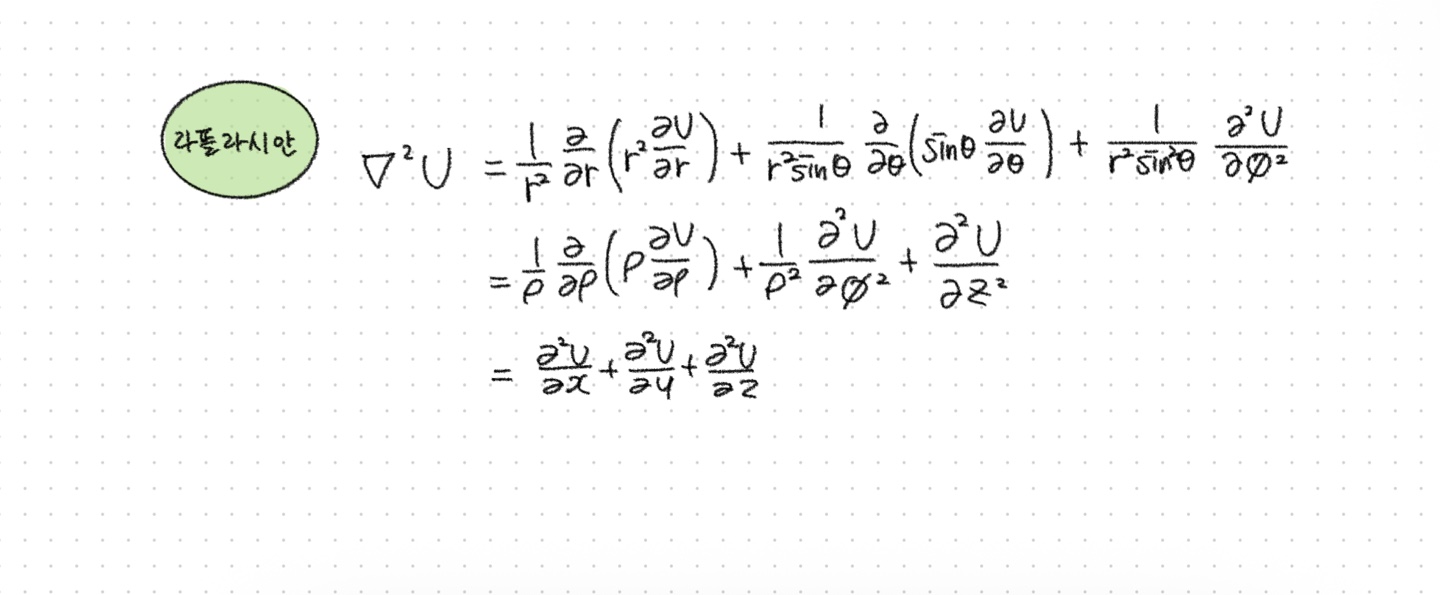 라플라시안
∇²U = 1/r² ∂/∂r (r² ∂U/∂r) + 1/(r² sinθ) ∂/∂θ (sinθ ∂U/∂θ) + 1/(r² sin²θ) ∂²U/∂∅²
= 1/ρ ∂/∂ρ (ρ ∂U/∂ρ) + 1/ρ² ∂²U/∂∅² + ∂²U/∂z²
= ∂²U/∂x + ∂²U/∂y + ∂²U/∂z